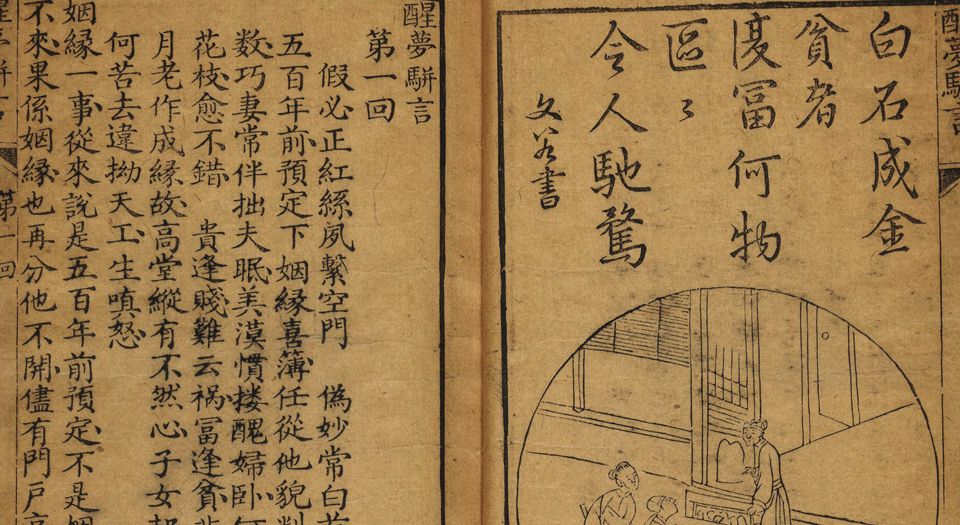 醒夢駢言
白石成金
貧者
冨何物
區〻
令人馳騖
文
書
醒夢駢言
第一回
假必正紅絲夙繫空門　偽妙常白
五百年前預定下姻緣喜簿任從他貌
數巧妻常伴拙夫眠美漢慣摟醜婦卧
花枝愈不錯　貴逢賤難云禍冨逢貧
月老作成緣故高堂縱有不然心子女
何苦去違拗天工生嗔怒
姻緣一事從來說是五百年前預定不是姻
不來果係姻緣也再分他不開儘有門戶高
第一回